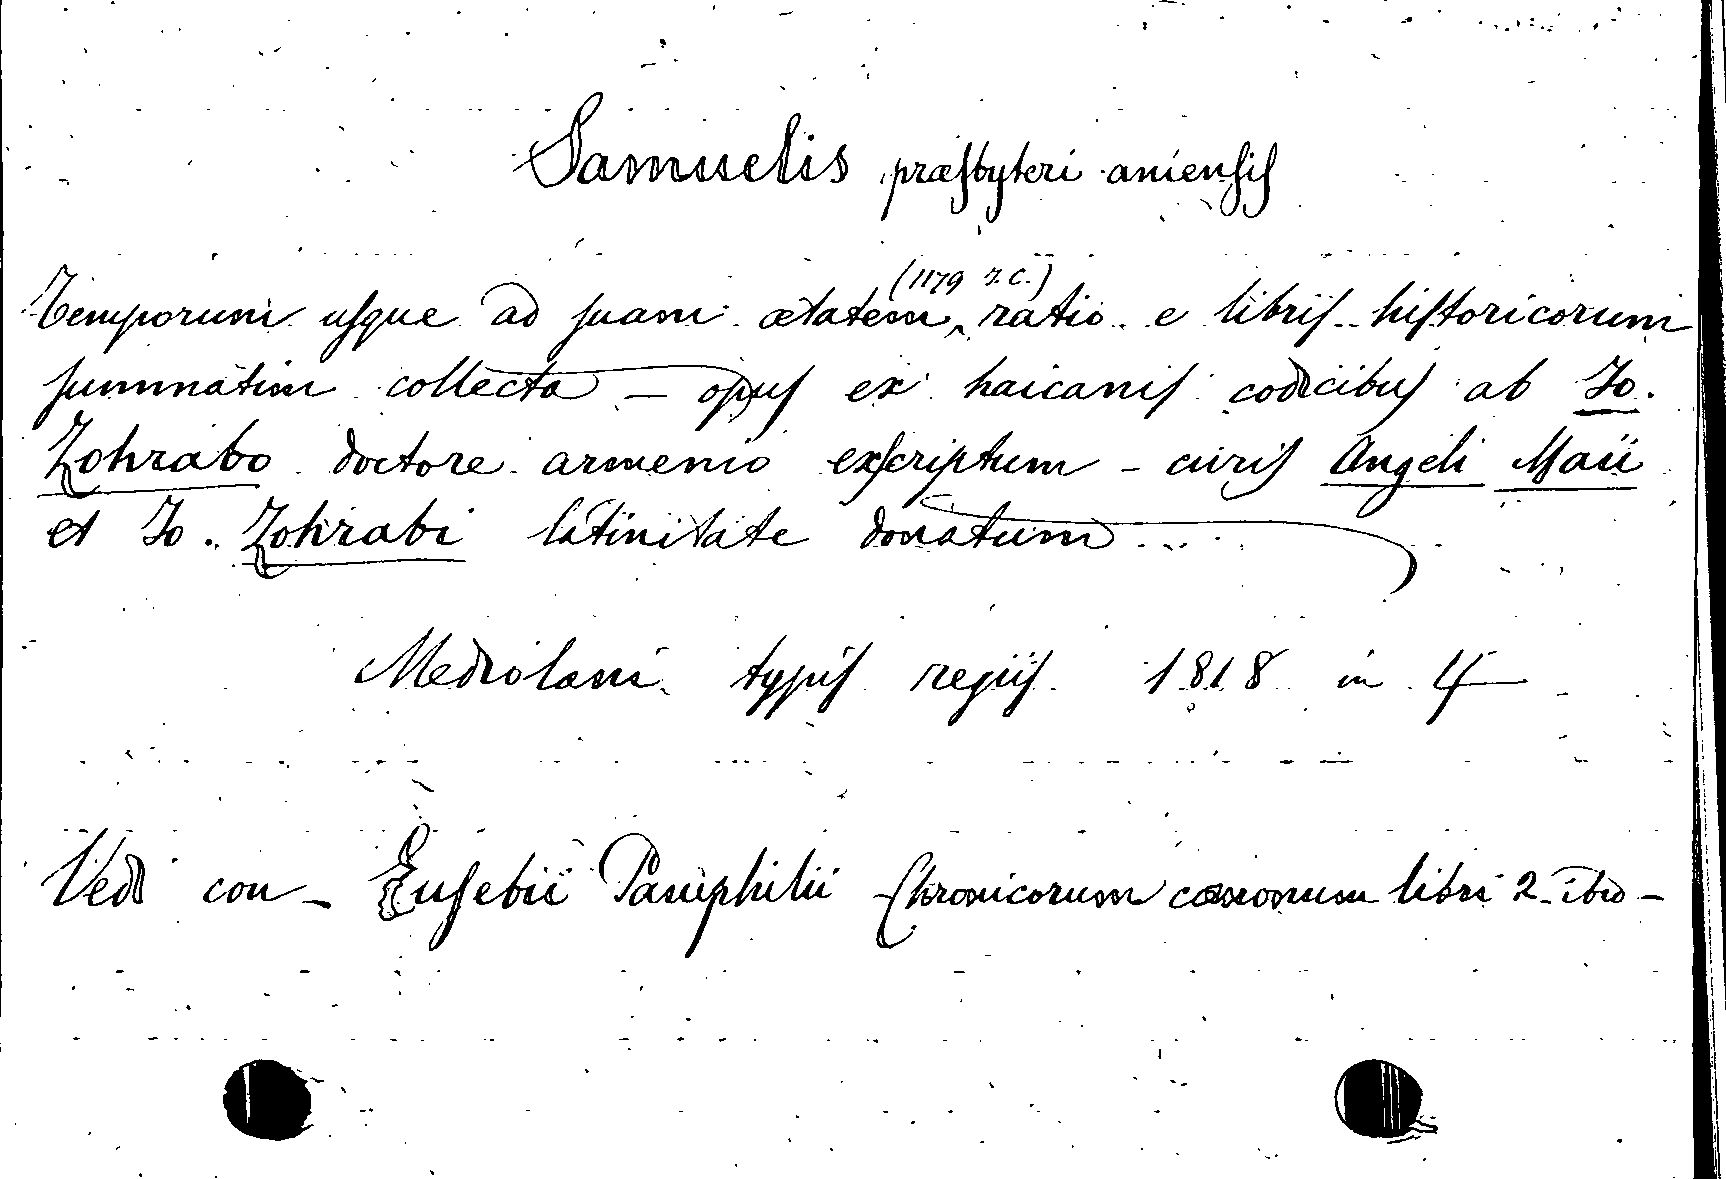 Samuelis præſbyteri anienſiſ
(1179 J.C.)
Temporum uſque ad ſuam ætatem ‸ ratio e libriſ hiſtoricorum
ſummatim collecta – opuſ ex haicaniſ codicibuſ ab Jo.
Zohrabo doctore armenio exſcriptum – curiſ Angeli Maii
et Jo. Zohrabi latinitate donatum...
Mediolani typiſ regiiſ 1818 in 4
Vedi con – Euſebii Pamphilii Chronicorum canonum libri 2. ibid –